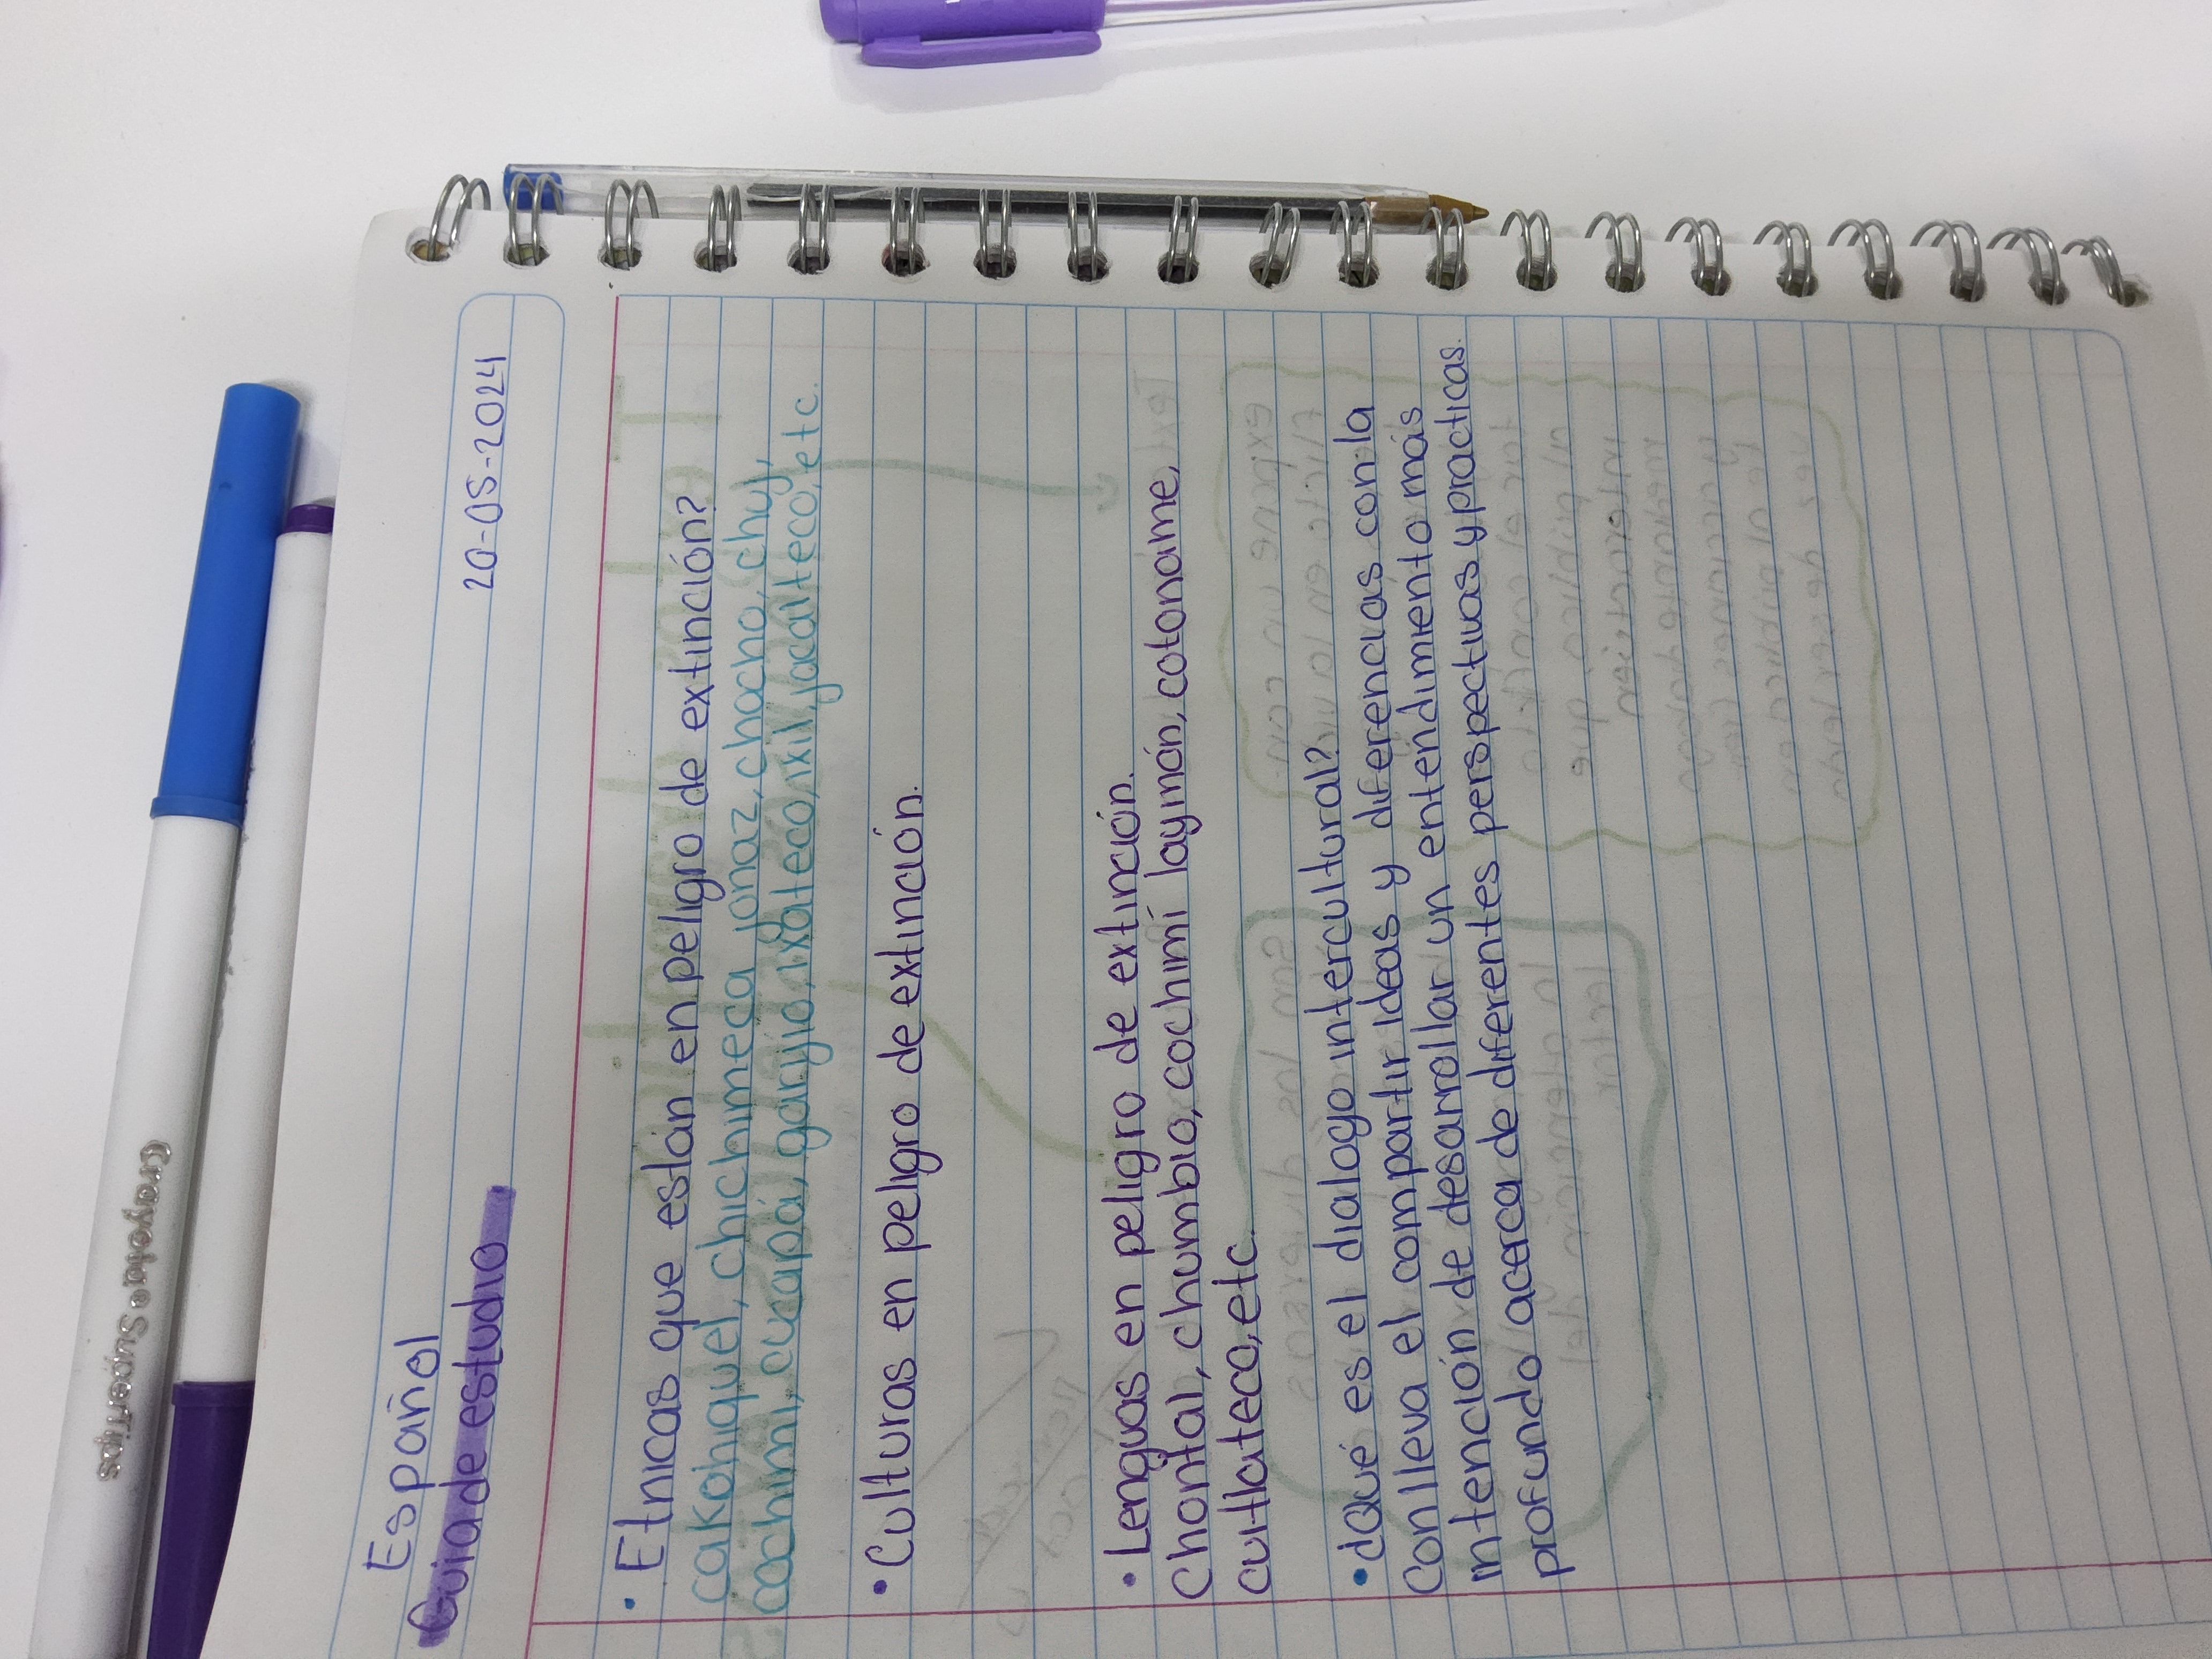 Español
Guia de estudio
20-05-2024
• Etnicas que están en peligro de extinción?
cakchiquel, chichimeca jonaz, chocho, chuj,
cochimi, cucapá, garyio, ixcateco, ixil, jacalteco, etc.
• Culturas en peligro de extinción.
• Lenguas en peligro de extinción.
Chontal, chumbio, cochimí laymón, cotoname,
cuitlateco, etc.
• ¿Qué es el dialogo intercultural?
Conlleva el compartir ideas y diferencias con la
intención de desarrollar un entendimiento más
profundo acerca de diferentes perspectivas y practicas.
Crayola Supertips